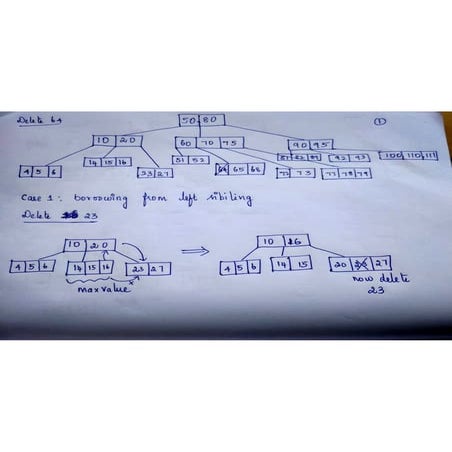 Delete 64
50 80
①
10 20
60 70 75
90 95
4 5 6
14 15 16
23 27
51 52
65 68
72 73
77 78 79
81 82 89
92 93
100 110 111
Case 1: borrowing from left sibiling
Delete 23
10 20
⇒
10 16
4 5 6
14 15 16
23 27
4 5 6
14 15
20 23 27
max value
now delete
23